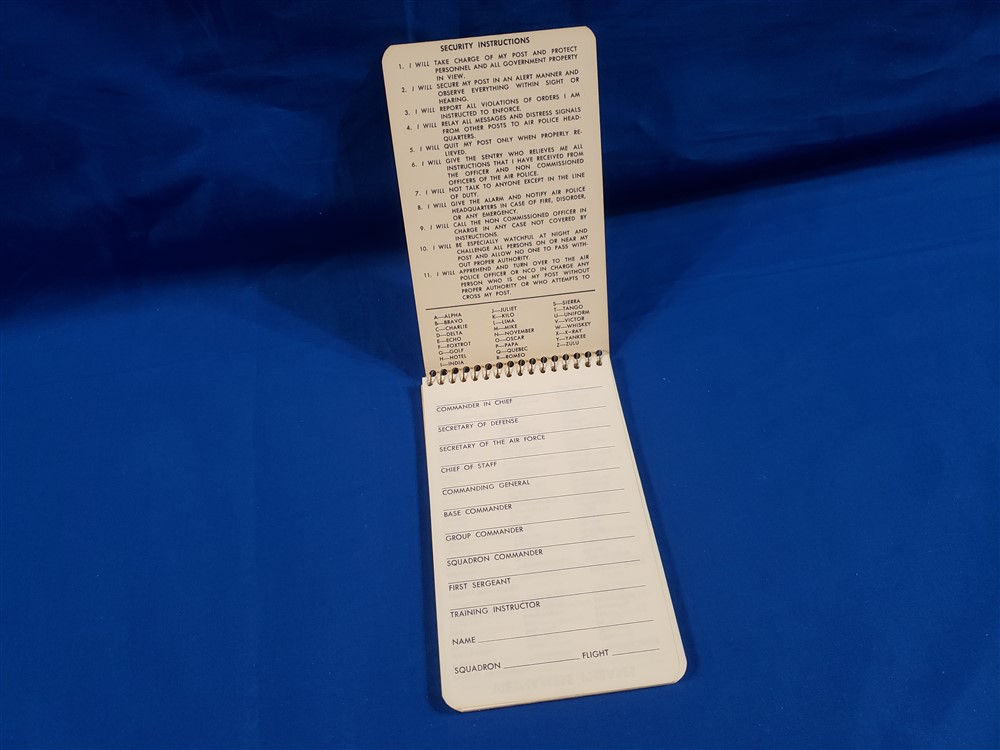 SECURITY INSTRUCTIONS
1. I WILL TAKE CHARGE OF MY POST AND PROTECT
PERSONNEL AND ALL GOVERNMENT PROPERTY
IN VIEW.
2. I WILL SECURE MY POST IN AN ALERT MANNER AND
OBSERVE EVERYTHING WITHIN SIGHT OR
HEARING.
3. I WILL REPORT ALL VIOLATIONS OF ORDERS I AM
INSTRUCTED TO ENFORCE.
4. I WILL RELAY ALL MESSAGES AND DISTRESS SIGNALS
FROM OTHER POSTS TO AIR POLICE HEAD-
QUARTERS.
5. I WILL QUIT MY POST ONLY WHEN PROPERLY RE-
LIEVED.
6. I WILL GIVE THE SENTRY WHO RELIEVES ME ALL
INSTRUCTIONS THAT I HAVE RECEIVED FROM
THE OFFICER AND NON COMMISSIONED
OFFICERS OF THE AIR POLICE.
7. I WILL NOT TALK TO ANYONE EXCEPT IN THE LINE
OF DUTY.
8. I WILL GIVE THE ALARM AND NOTIFY AIR POLICE
HEADQUARTERS IN CASE OF FIRE, DISORDER,
OR ANY EMERGENCY.
9. I WILL CALL THE NON COMMISSIONED OFFICER IN
CHARGE IN ANY CASE NOT COVERED BY
INSTRUCTIONS.
10. I WILL BE ESPECIALLY WATCHFUL AT NIGHT AND
CHALLENGE ALL PERSONS ON OR NEAR MY
POST AND ALLOW NO ONE TO PASS WITH-
OUT PROPER AUTHORITY.
11. I WILL APPREHEND AND TURN OVER TO THE AIR
POLICE OFFICER OR NCO IN CHARGE ANY
PERSON WHO IS ON MY POST WITHOUT
PROPER AUTHORITY OR WHO ATTEMPTS TO
CROSS MY POST.
A—ALPHA
B—BRAVO
C—CHARLIE
D—DELTA
E—ECHO
F—FOXTROT
G—GOLF
H—HOTEL
I—INDIA
J—JULIET
K—KILO
L—LIMA
M—MIKE
N—NOVEMBER
O—OSCAR
P—PAPA
Q—QUEBEC
R—ROMEO
S—SIERRA
T—TANGO
U—UNIFORM
V—VICTOR
W—WHISKEY
X—X-RAY
Y—YANKEE
Z—ZULU
COMMANDER IN CHIEF
SECRETARY OF DEFENSE
SECRETARY OF THE AIR FORCE
CHIEF OF STAFF
COMMANDING GENERAL
BASE COMMANDER
GROUP COMMANDER
SQUADRON COMMANDER
FIRST SERGEANT
TRAINING INSTRUCTOR
NAME
SQUADRON FLIGHT